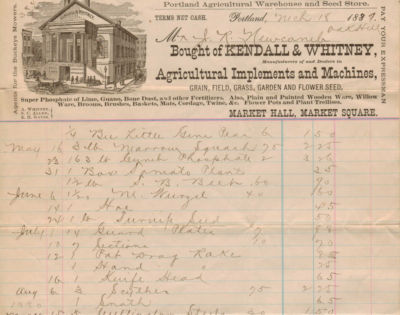 Portland Agricultural Warehouse and Seed Store.
TERMS NOT CASH. Portland, Mch 18 1889.
Mr J. R. Newcomb Oak Hill
Bought of KENDALL & WHITNEY,
Manufacturers of and Dealers in
Agricultural Implements and Machines,
GRAIN, FIELD, GRASS, GARDEN AND FLOWER SEED,
Super Phosphate of Lime, Guano, Bone Dust, and other Fertilizers. Also, Plain and Painted Wooden Ware, Willow
Ware, Brooms, Brushes, Baskets, Mats, Cordage, Twine, &c. Flower Pots and Plant Trellises.
MARKET HALL, MARKET SQUARE.
Agents for the Buckeye Mowers.
PAY YOUR EXPRESSMAN
Bu Little Gem Peas 6 1 50
May 16 3 lb Marrow Squash 75 2 25
23 163 lb Phosphate 2 3 26
31 1 Box Tomato Plants 35
1/2 lb S. B. Beet 60
June 6 1/2 M. Wurzel 40
14 1 Hoe 45
24 1 lb Turnip Seed 50
July 1 14 Guard Plates 7 98
10 2 Sections
12 1 Pat Drag Rake
1 Hand "
16 1 Knife Head 65
Aug 6 3 Scythes 75 2 25
1 Snath 65